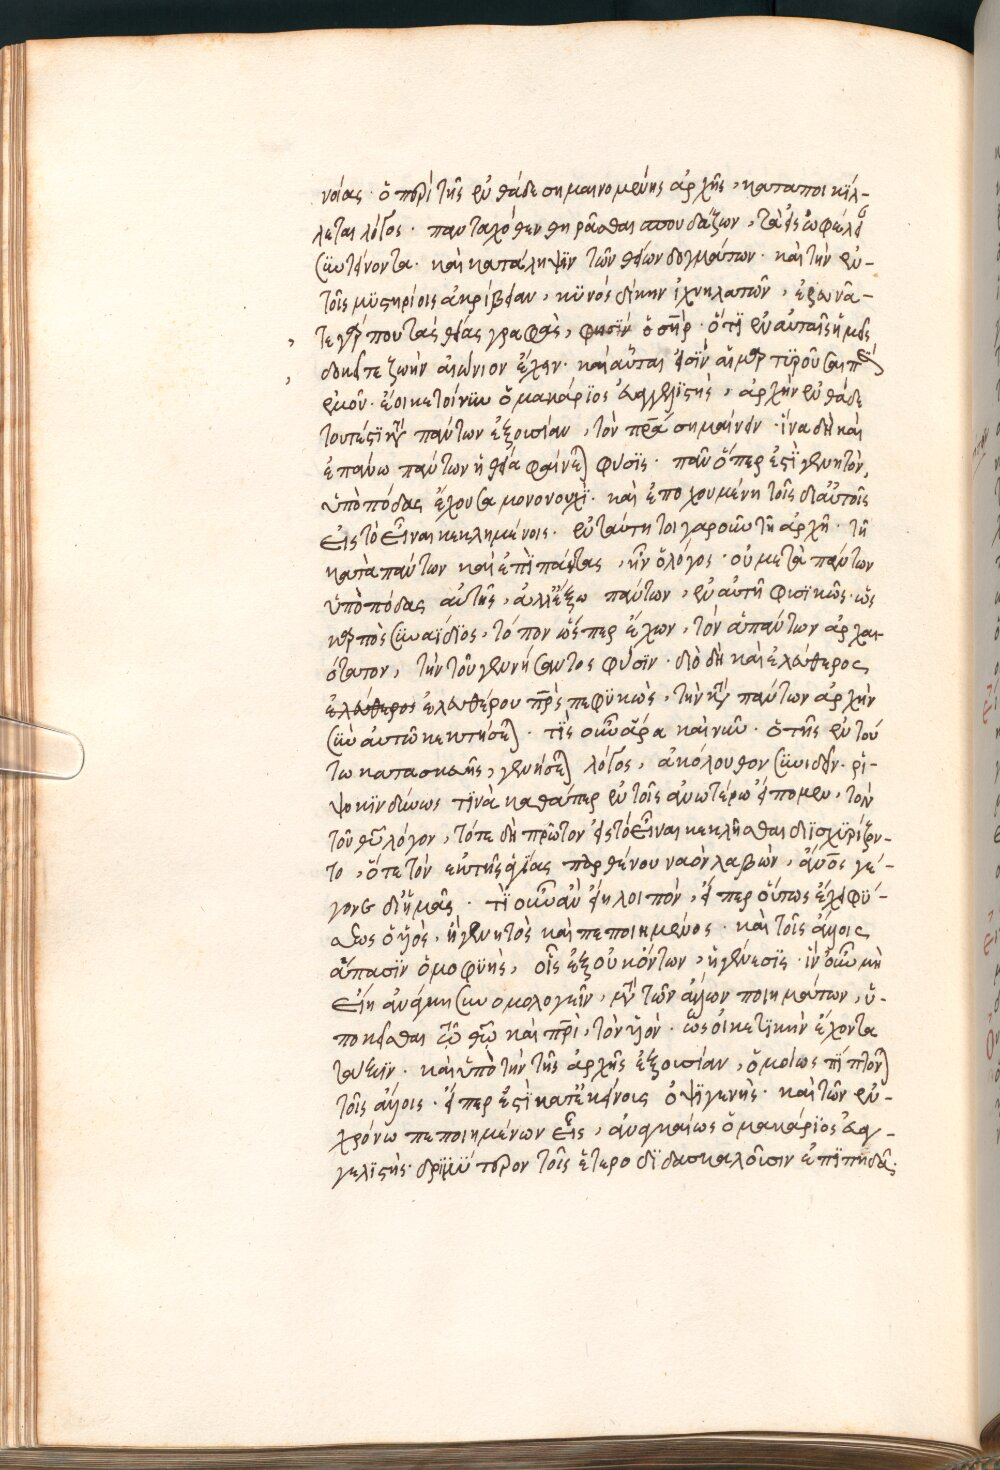 νοίας· ὁ περὶ τῆς ἐνθάδε σημαινομένης ἀρχῆς, καταποικίλ-
λεται λόγος· πανταχόθεν θηρᾶσθαι σπουδάζων, τὰ εἰς ὠφέλειαν
συντείνοντα· καὶ κατάληψιν τῶν θείων δογμάτων· καὶ τὴν ἐν
τοῖς μυστηρίοις ἀκρίβειαν, κυνὸς δίκην ἰχνηλατῶν, ἐρωνᾶ-
τε γάρ που τὰς θείας γραφὰς, φησὶν ὁ σῆρ· ὅτι ἐν αὐταῖς ὑμεῖς
δοκεῖτε ζωὴν αἰώνιον ἔχειν· καὶ αὗταί εἰσιν αἱ μαρτυροῦσαι περὶ
ἐμοῦ· ἔοικε τοίνυν ὁ μακάριος εὐαγγελιστὴς, ἀρχὴν ἐνθάδε
τουτέστι τὴν κατὰ πάντων ἐξουσίαν, τὸν πρα σημαίνειν· ἵνα δὴ καὶ
ἐπάνω πάντων ἡ θεία φαίνεται φύσις· πᾶν ὅπερ ἐστὶ γενητὸν,
ὑπὸ πόδας ἔχουσα μονονουχὶ· καὶ ἐποχουμένη τοῖς δι αὐτῆς
εἰς τὸ εἶναι κεκλημένοις· ἐν ταύτῃ τοιγαροῦν τῇ ἀρχῇ· τῇ
κατὰ πάντων καὶ ἐπὶ πάντας, ἦν ὁ λόγος· οὐ μετὰ πάντων
ὑπὸ πόδας αὐτῆς, ἀλλ ἔξω πάντων, ἐν αὐτῇ φυσικῶς· ὡς
καρπὸς συναΐδιος, τόπον ὥσπερ ἔχων, τὸν ἁπάντων ἀρχαι-
ότατον, τὴν τοῦ γεννήσαντος φύσιν· διὸ δὴ καὶ ἐλεύθερος
ἐλεύθερος ἐλευθέρου πρς πεφυκὼς, τὴν κατὰ πάντων ἀρχὴν
σὺν αὐτῷ κεκτήσεται· τίς οὖν ἄρα καὶ νῦν· ὁ τῆς ἐν τού
τῳ κατασκευῆς, γενήσεται λόγος, ἀκόλουθον συνιδεῖν· ῥι-
ψοκινδύνως τινὰ καθάπερ ἐν τοῖς ἀνωτέρω εἴπομεν, τὸν
τοῦ θεοῦ λόγον, τότε δὴ πρῶτον εἰς τὸ εἶναι κεκλῆσθαι διϊσχυρίζον-
το, ὅτε τὸν ἐκ τῆς ἁγίας παρθένου ναὸν λαβὼν, ἄνος γέ-
γονε δι ἡμᾶς· τί οὖν ἂν εἴη λοιπὸν, εἴπερ οὕτως ἔχει φύ-
σεως ὁ υἱὸς, ἢ γενητὸς καὶ πεποιημένος· καὶ τοῖς ἄλλοις
ἅπασιν ὁμοφυὴς, οἷς ἐξ οὐκ ὄντων, ἡ γένεσις· ἵν οὖν μὴ
εἴη ἀνάγκη συνομολογεῖν, μετὰ τῶν ἄλλων ποιημάτων, ὑ-
ποκεῖσθαι τῷ θεῷ καὶ πρι, τὸν υἱόν· ὡς οἰκετικὴν ἔχοντα
τάξιν· καὶ ὑπὸ τὴν τῆς ἀρχῆς ἐξουσίαν, ὁμοίως πίπτοντα
τοῖς ἄλλοις· εἴπερ ἐστὶ κατ ἐκείνους ὀψιγενὴς· καὶ τῶν ἐν
χρόνῳ πεποιημένων εἷς, ἀναγκαίως ὁ μακάριος εὐαγ-
γελιστὴς· δριμύτερον τοῖς ἑτεροδιδασκαλοῦσιν ἐπιπηδᾶ·